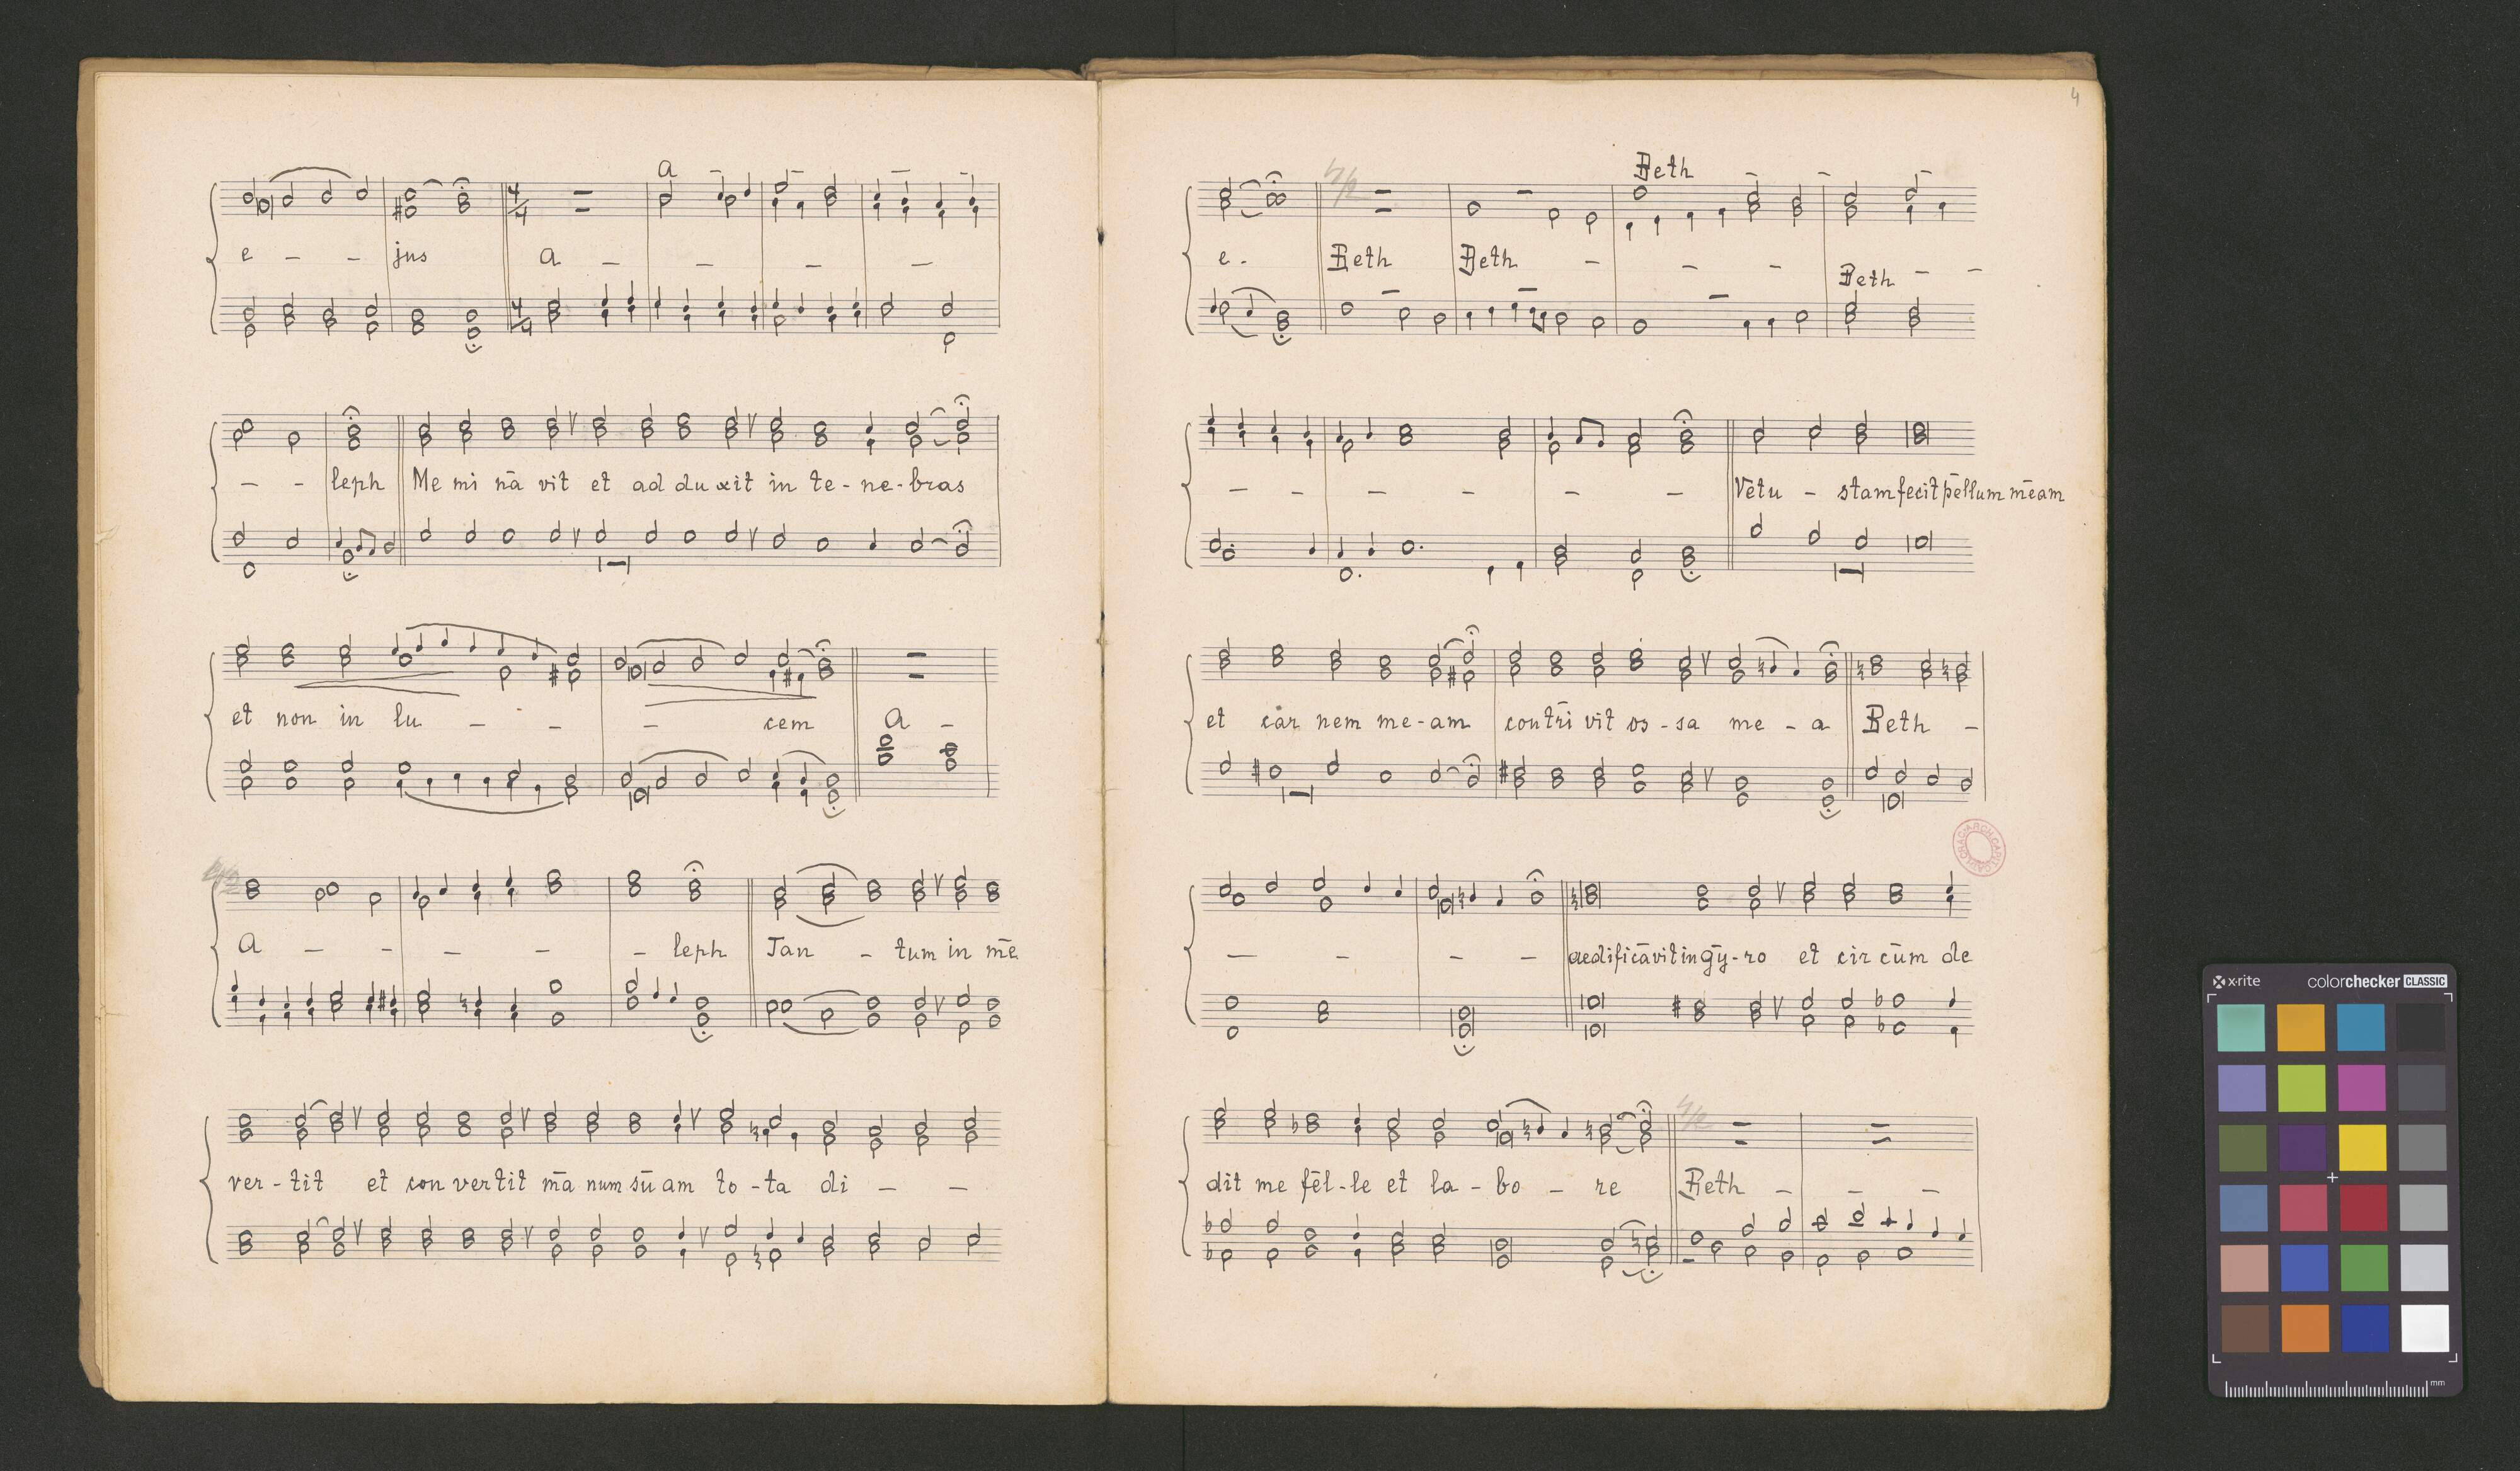 a
e - - jus a - - - -
- - leph Me mi nā vit et ad du xit in te - ne - bras
et non in lu - - - cem A -
A - - - - - leph Tan - tum in mē
ver - tit et con ver tit mā num sū am to - ta di - -
4
Beth
e - Beth Beth - - -
Beth - -
- - - - - - Vētu - stam fecit pēllum mēam
et car nem me - am con trī vit os - sa me - a Beth -
- - - - aedificāvit in gȳ - ro et cir cūm de
dit me fēl - le et la - bo - re Beth - - -
x-rite colorchecker CLASSIC
mm